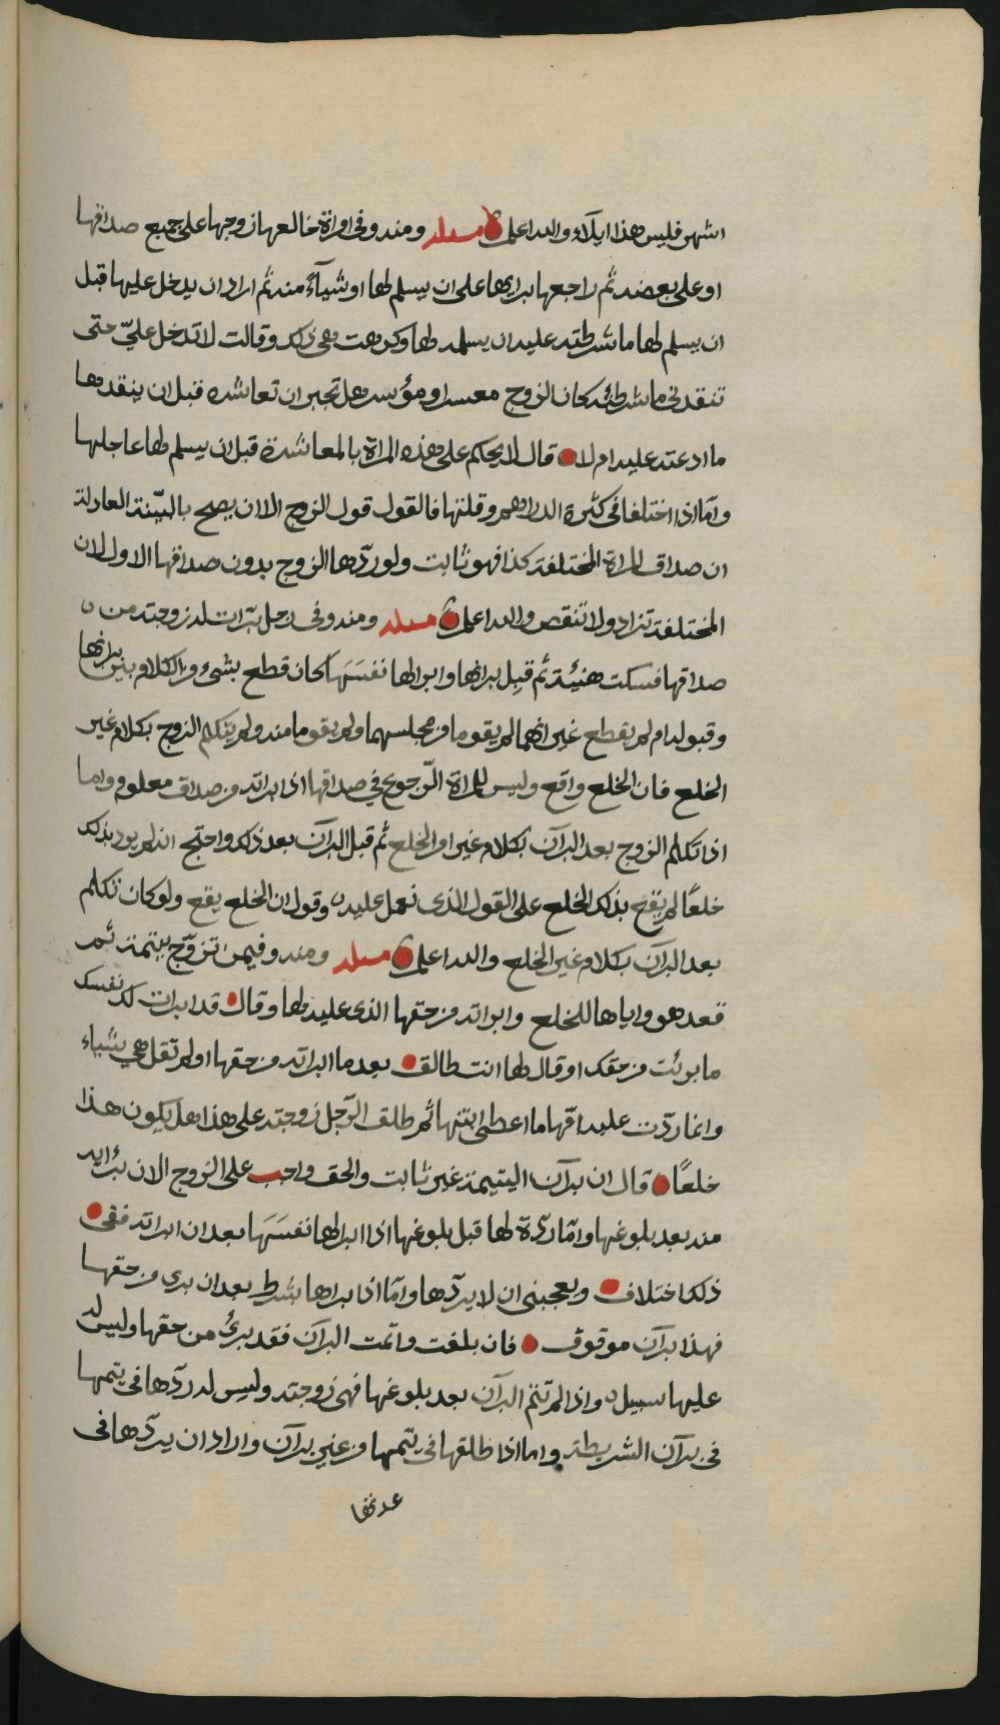 اشهر فليس هذا ايلاء والله اعلم مسئله ومنه وفي امراة خالعها زوجها على جميع صداقها
او على بعضه ثم راجعها برايها على ان يسلم لها او شيآء منه ثم اراد ان يدخل عليها قبل
ان يسلم لها ما شرطته عليه ان يسلمه لها وكرهت هي ذلك وقالت لا تدخل عليّ حتى
تنقدني ما شرطته كان الزوج معسرا او مؤسر هل تجبر ان تعاشره قبل ان ينقدها
ما ادعته عليه ام لا قال لا يحكم على هذه المراة بالمعاشرة قبل ان يسلم لها عاجلها
وامّا اذا اختلفا في كثرة الدراهم وقلتها فالقول قول الزوج الا ان يصح بالبيّنة العادلة
ان صداق المراة المختلفة كذا فهو ثابت ولو ردّها الزوج بدون صداقها الاول لان
المختلفة تزاد ولا تنقص والله اعلم مسئله ومنه وفي رجل تبرّات له زوجته من
صداقها فسكت هنيئة ثم قبل برانها وابرا لها نفسَهَا كان قطع بشيء من الكلام بين برانها
وقبوله ام لم يقطع غير انهما لم يقوما من مجلسهما ولم يقوما منه ولم يتكلم الزوج بكلام غير
الخلع فان الخلع واقع وليس للمراة الرّجوع في صداقها اذا ابراته من صداق معلوم واما
اذا تكلم الزوج بعد البرآن بكلام غير امر الخلع ثم قبل البرآن بعد ذلك واحتج انه لم يرد بذلك
خلعًا لم يقع بذلك الخلع على القول الذي نعمل عليه وقول ان الخلع يقع ولو كان تكلم
بعد البرآن بكلام غير الخلع والله اعلم مسئله ومنه وفيمن تزوّج بيتيمة ثم
قعد هو واياها للخلع وابراته من حقها الذي عليه لها وقال قد ابرات لك نفسك
ما برئت من حقك او قال لها انت طالق بعد ما ابراته من حقها او لم تقل هي شياء
وانما ردّت عليه امّها ما اعطى ابنتها ثم طلق الرّجل زوجته على هذا هل يكون هذا
خلعًا قال ان برآن اليتيمة غير ثابت والحق واجب على الزوج الا ان تبرايه
منه بعد بلوغها وامّا ردّه لها قبل بلوغها اذا ابرا لها نفسَهَا بعد ان ابراته ففي
ذلك اختلاف ويعجبني ان لا يردّها وامّا اذا براها بشرط بعد ان بري من حقها
فهذا برآن موقوف فان بلغت واتمت البرآن فقد برئ من حقها وليس له
عليها سبيل واذا لم تتم البرآن بعد بلوغها فهي زوجته وليس له ردّها في يتمها
في برآن الشريطة واما اذا طلقها في يتمها من غير برآن واراد ان يردّها في
عدتها